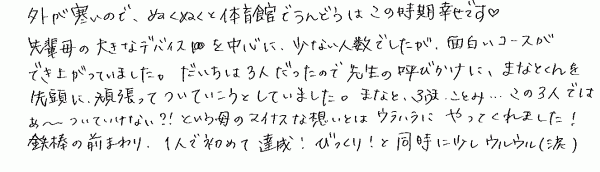 外が寒いので、ぬくぬくと体育館でうんどうはこの時期幸せです♡
先輩母の大きなデバイスを中心に、少ない人数でしたが、面白いコースが
でき上がっていました。だいちは3人だったので先生の呼びかけに、まなとくんを
先頭に、頑張ってついていこうとしていました。まなと、ふうま、ことみ…この3人では
あ〜ついていけない?!という母のマイナスな想いとはウラハラにやってくれました!
鉄棒の前まわり、1人で初めて達成!びっくり!と同時に少しウルウル(涙)